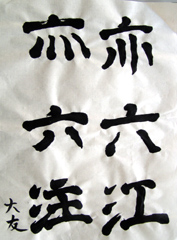 亦六江
亦六注
大友